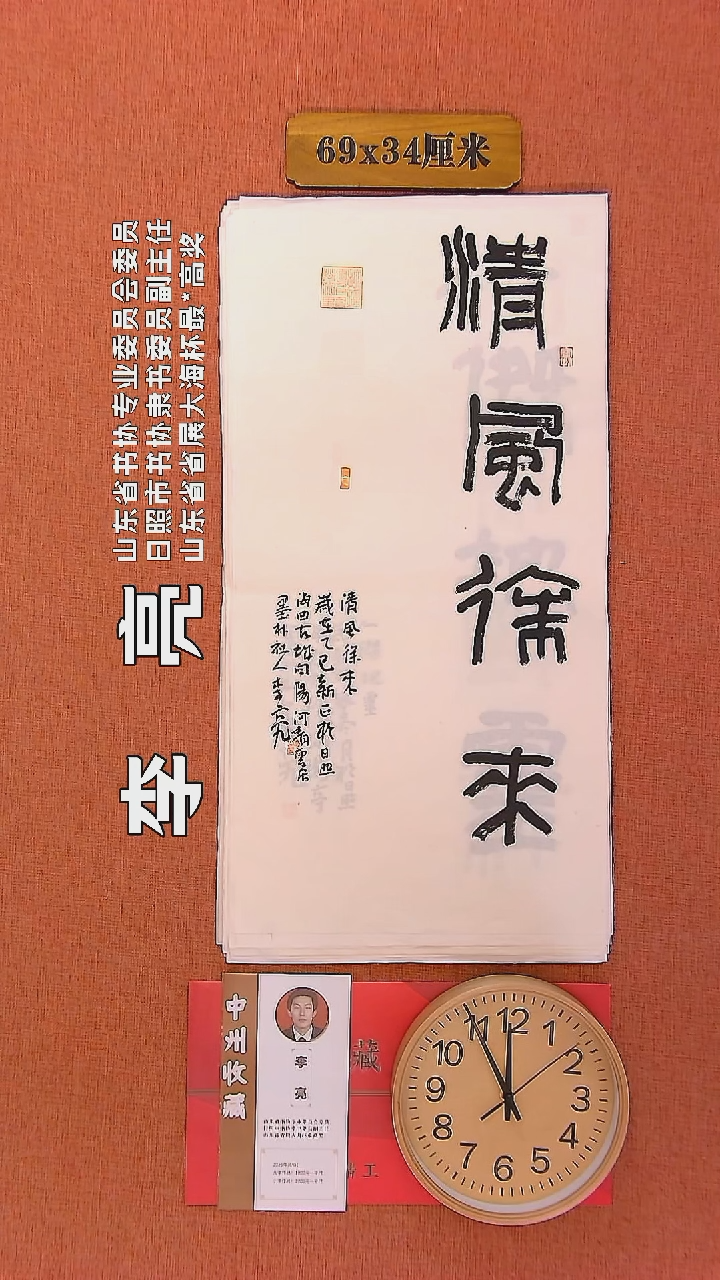 69x34厘米
清风徐来
清风徐来
歲在乙巳新正於日照
墨朴社人李亮
李亮
山东省书协专业委员会委员
日照市书协隶书委员副主任
山东省省展大海杯最*高奖
中州收藏
李亮
藏
工
12
1
2
3
4
5
6
7
8
9
10
11